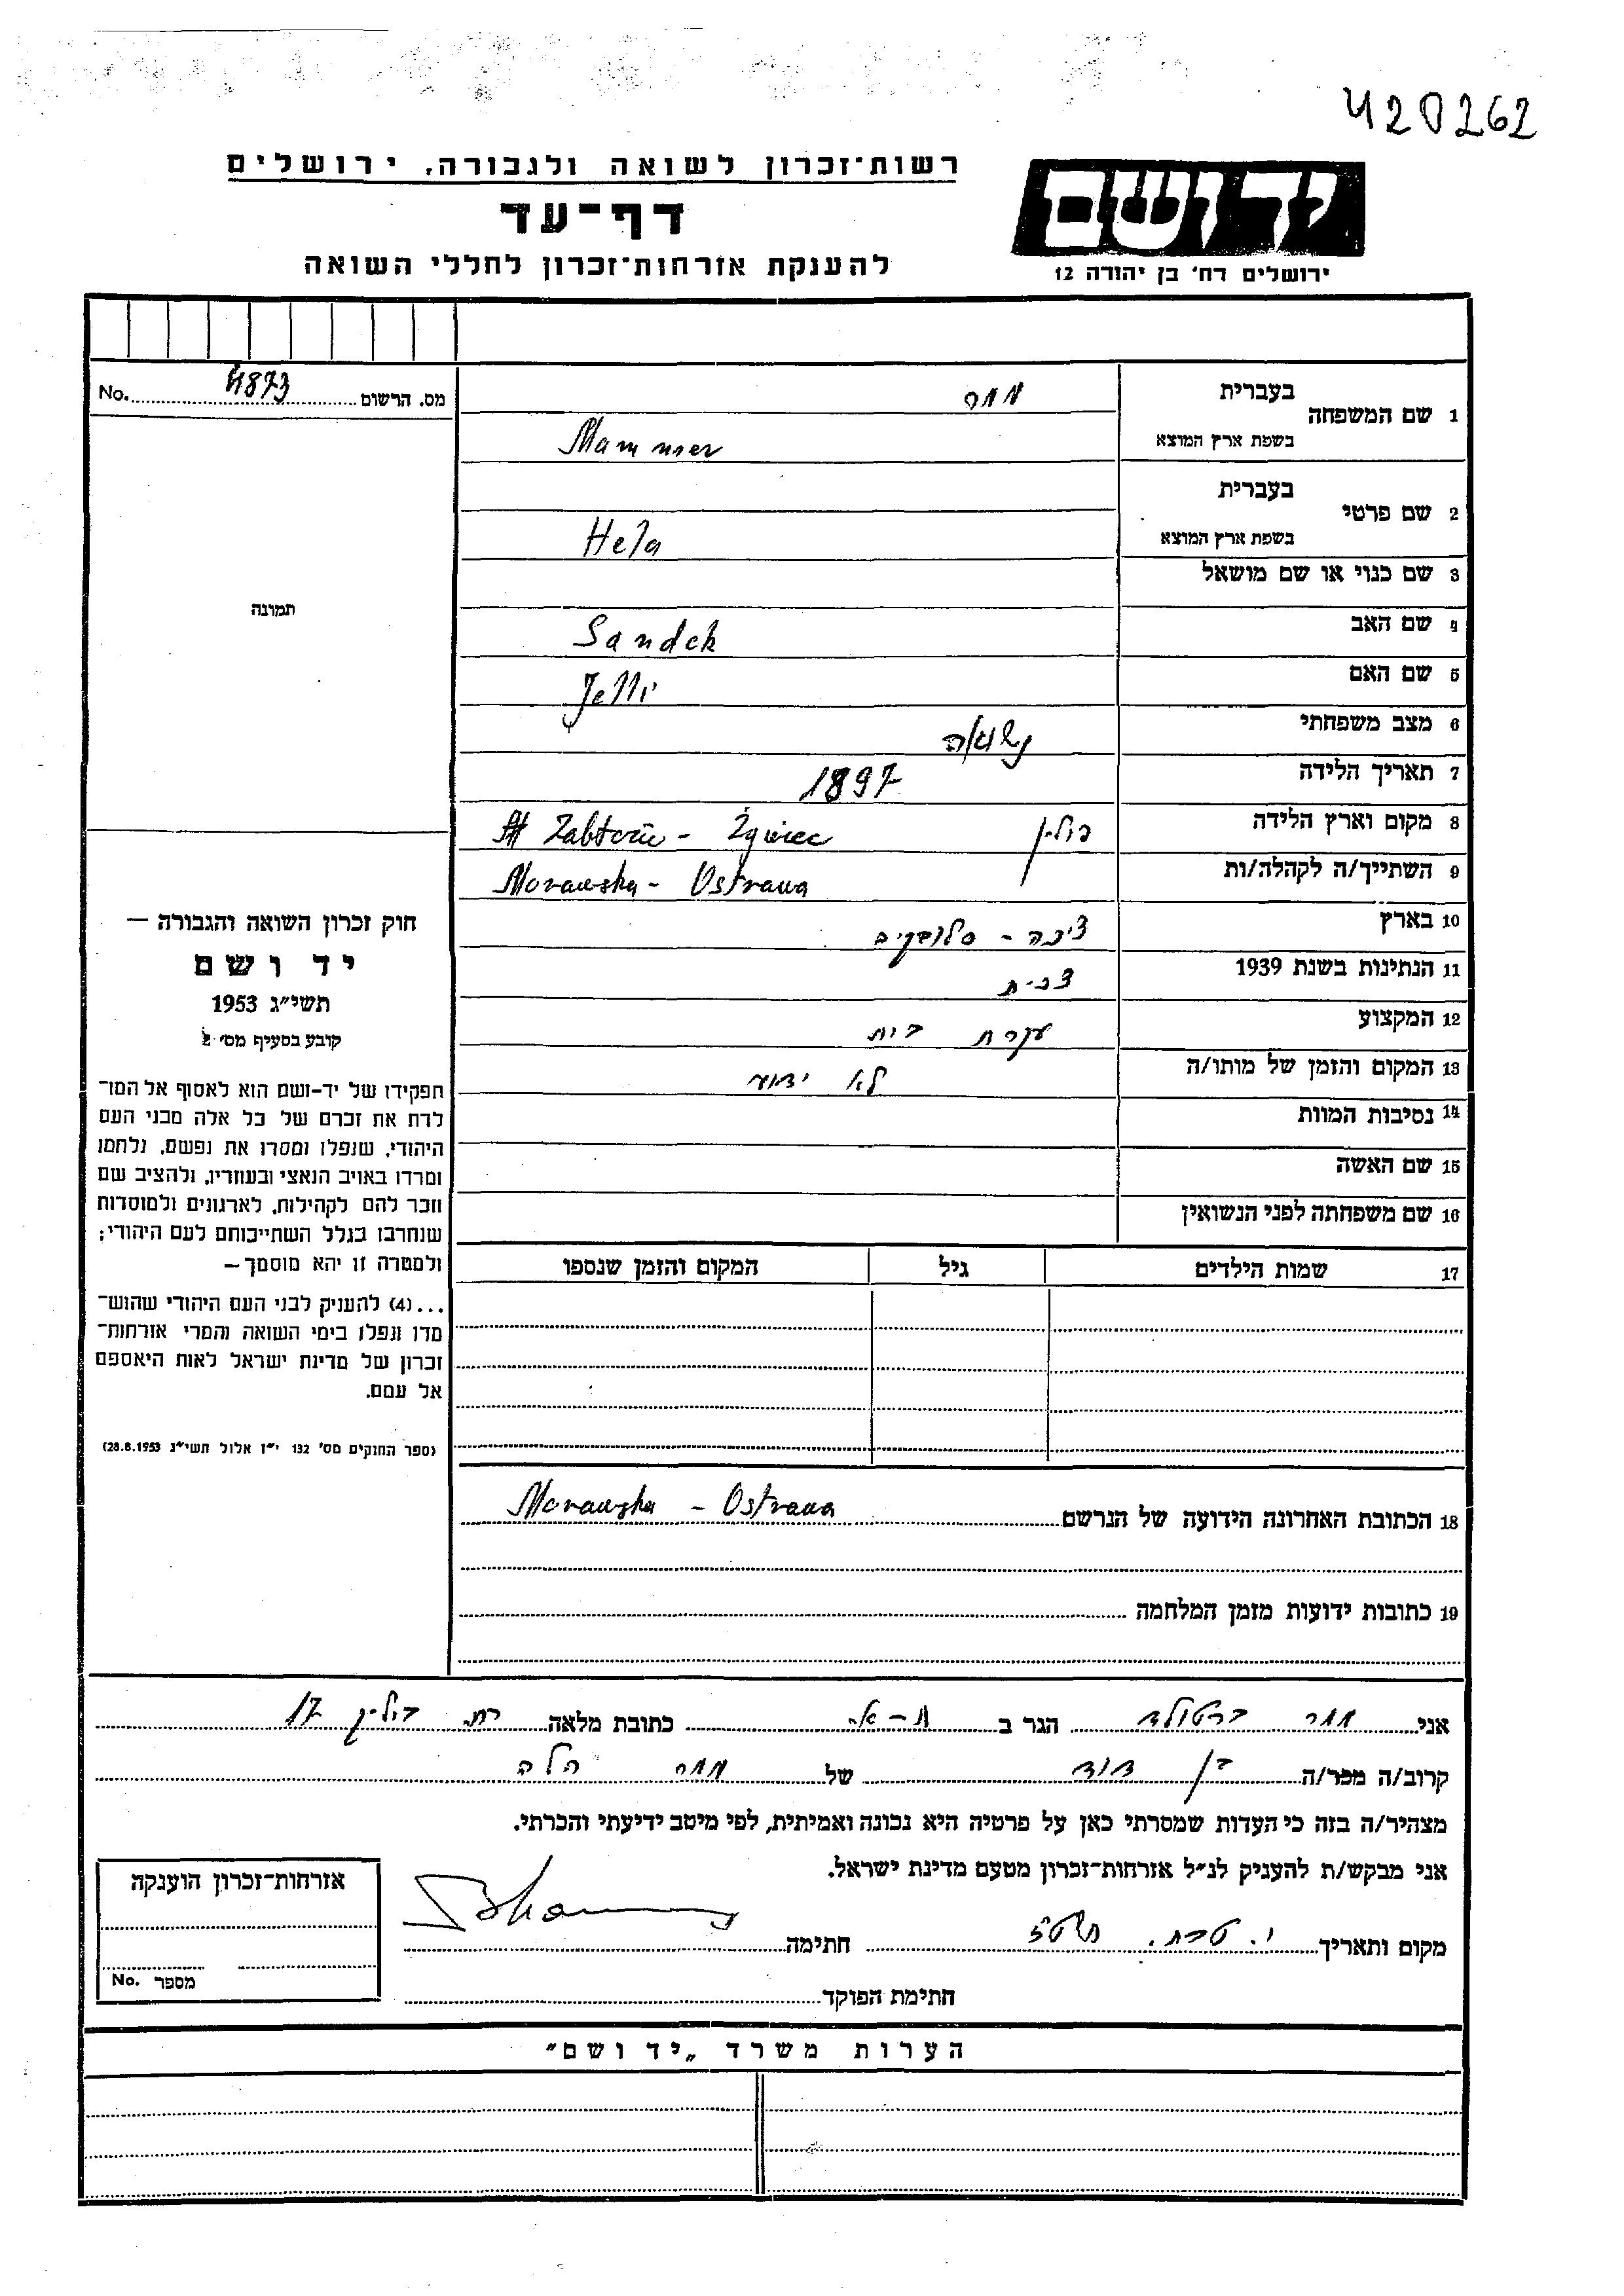 420262
רשות־זכרון לשואה ולגבורה, ירושלים
דף־עד
להענקת אזרחות־זכרון לחללי השואה
יד ושם
ירושלים רח' בן יהודה 12
מס. הרשום 4873 No.
1 שם המשפחה
בעברית ממר
בשפת ארץ המוצא Mammer
2 שם פרטי
בעברית
בשפת ארץ המוצא Hela
3 שם כנוי או שם מושאל
4 שם האב Sandek
5 שם האם Jelli
6 מצב משפחתי נשואה
7 תאריך הלידה 1897
8 מקום וארץ הלידה פולין Żywiec
9 השתייך/ה לקהלה/ות Morawska - Ostrawa
10 בארץ צ'כו - סלובקיה
11 הנתינות בשנת 1939 צ'כית
12 המקצוע עקרת בית
13 המקום והזמן של מותו/ה לא ידוע
14 נסיבות המוות
15 שם האשה
16 שם משפחתה לפני הנשואין
17 שמות הילדים גיל המקום והזמן שנספו
תמונה
חוק זכרון השואה והגבורה —
יד ושם
תשי״ג 1953
קובע בסעיף מס' 2
תפקידו של יד-ושם הוא לאסוף אל המו־
לדת את זכרם של כל אלה מבני העם
היהודי, שנפלו ומסרו את נפשם, נלחמו
ומרדו באויב הנאצי ובעוזריו, ולהציב שם
וזכר להם לקהילות, לארגונים ולמוסדות
שנחרבו בגלל השתייכותם לעם היהודי;
ולמטרה זו יהא מוסמך —
...(4) להעניק לבני העם היהודי שהוש־
מדו ונפלו בימי השואה והמרי אזרחות־
זכרון של מדינת ישראל לאות היאספם
אל עמם.
(ספר החוקים מס' 132 י״ז אלול תשי״ג 28.8.1953)
18 הכתובת האחרונה הידועה של הנרשם Morawska - Ostrawa
19 כתובות ידועות מזמן המלחמה
אני ממר ברטולד הגר ב ת-א כתובת מלאה רח. 17
קרוב/ה מפר/ה בן דוד של ממר הלה
מצהיר/ה בזה כי העדות שמסרתי כאן על פרטיה היא נכונה ואמיתית, לפי מיטב ידיעתי והכרתי.
אני מבקש/ת להעניק לנ״ל אזרחות־זכרון מטעם מדינת ישראל.
מקום ותאריך י. טבת. חתימה
חתימת הפוקד
אזרחות־זכרון הוענקה
מספר No.
הערות משרד „יד ושם״